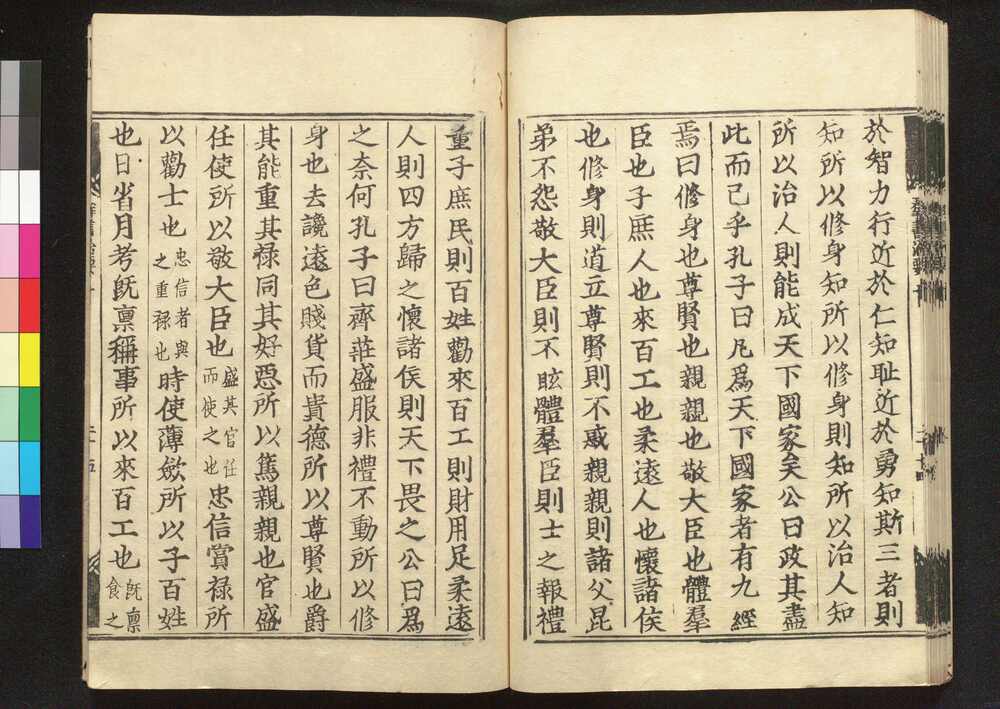 於智力行近於仁知耻近於勇知斯三者則
知所以修身知所以修身則知所以治人知
所以治人則能成天下國家矣公曰政其盡
此而已乎孔子曰凡爲天下國家者有九經
焉曰修身也尊賢也親親也敬大臣也體羣
臣也子庶人也來百工也柔遠人也懷諸侯
也修身則道立尊賢則不惑親親則諸父昆
弟不怨敬大臣則不眩體羣臣則士之報禮
重子庶民則百姓勸來百工則財用足柔遠
人則四方歸之懷諸侯則天下畏之公曰爲
之奈何孔子曰齊莊盛服非禮不動所以修
身也去讒遠色賤貨而貴德所以尊賢也爵
其能重其祿同其好惡所以篤親親也官盛
任使所以敬大臣也盛其官任而使之也忠信賞祿所
以勸士也忠信者與之重祿也時使薄歛所以子百姓
也日省月考旣禀稱事所以來百工也旣禀食之